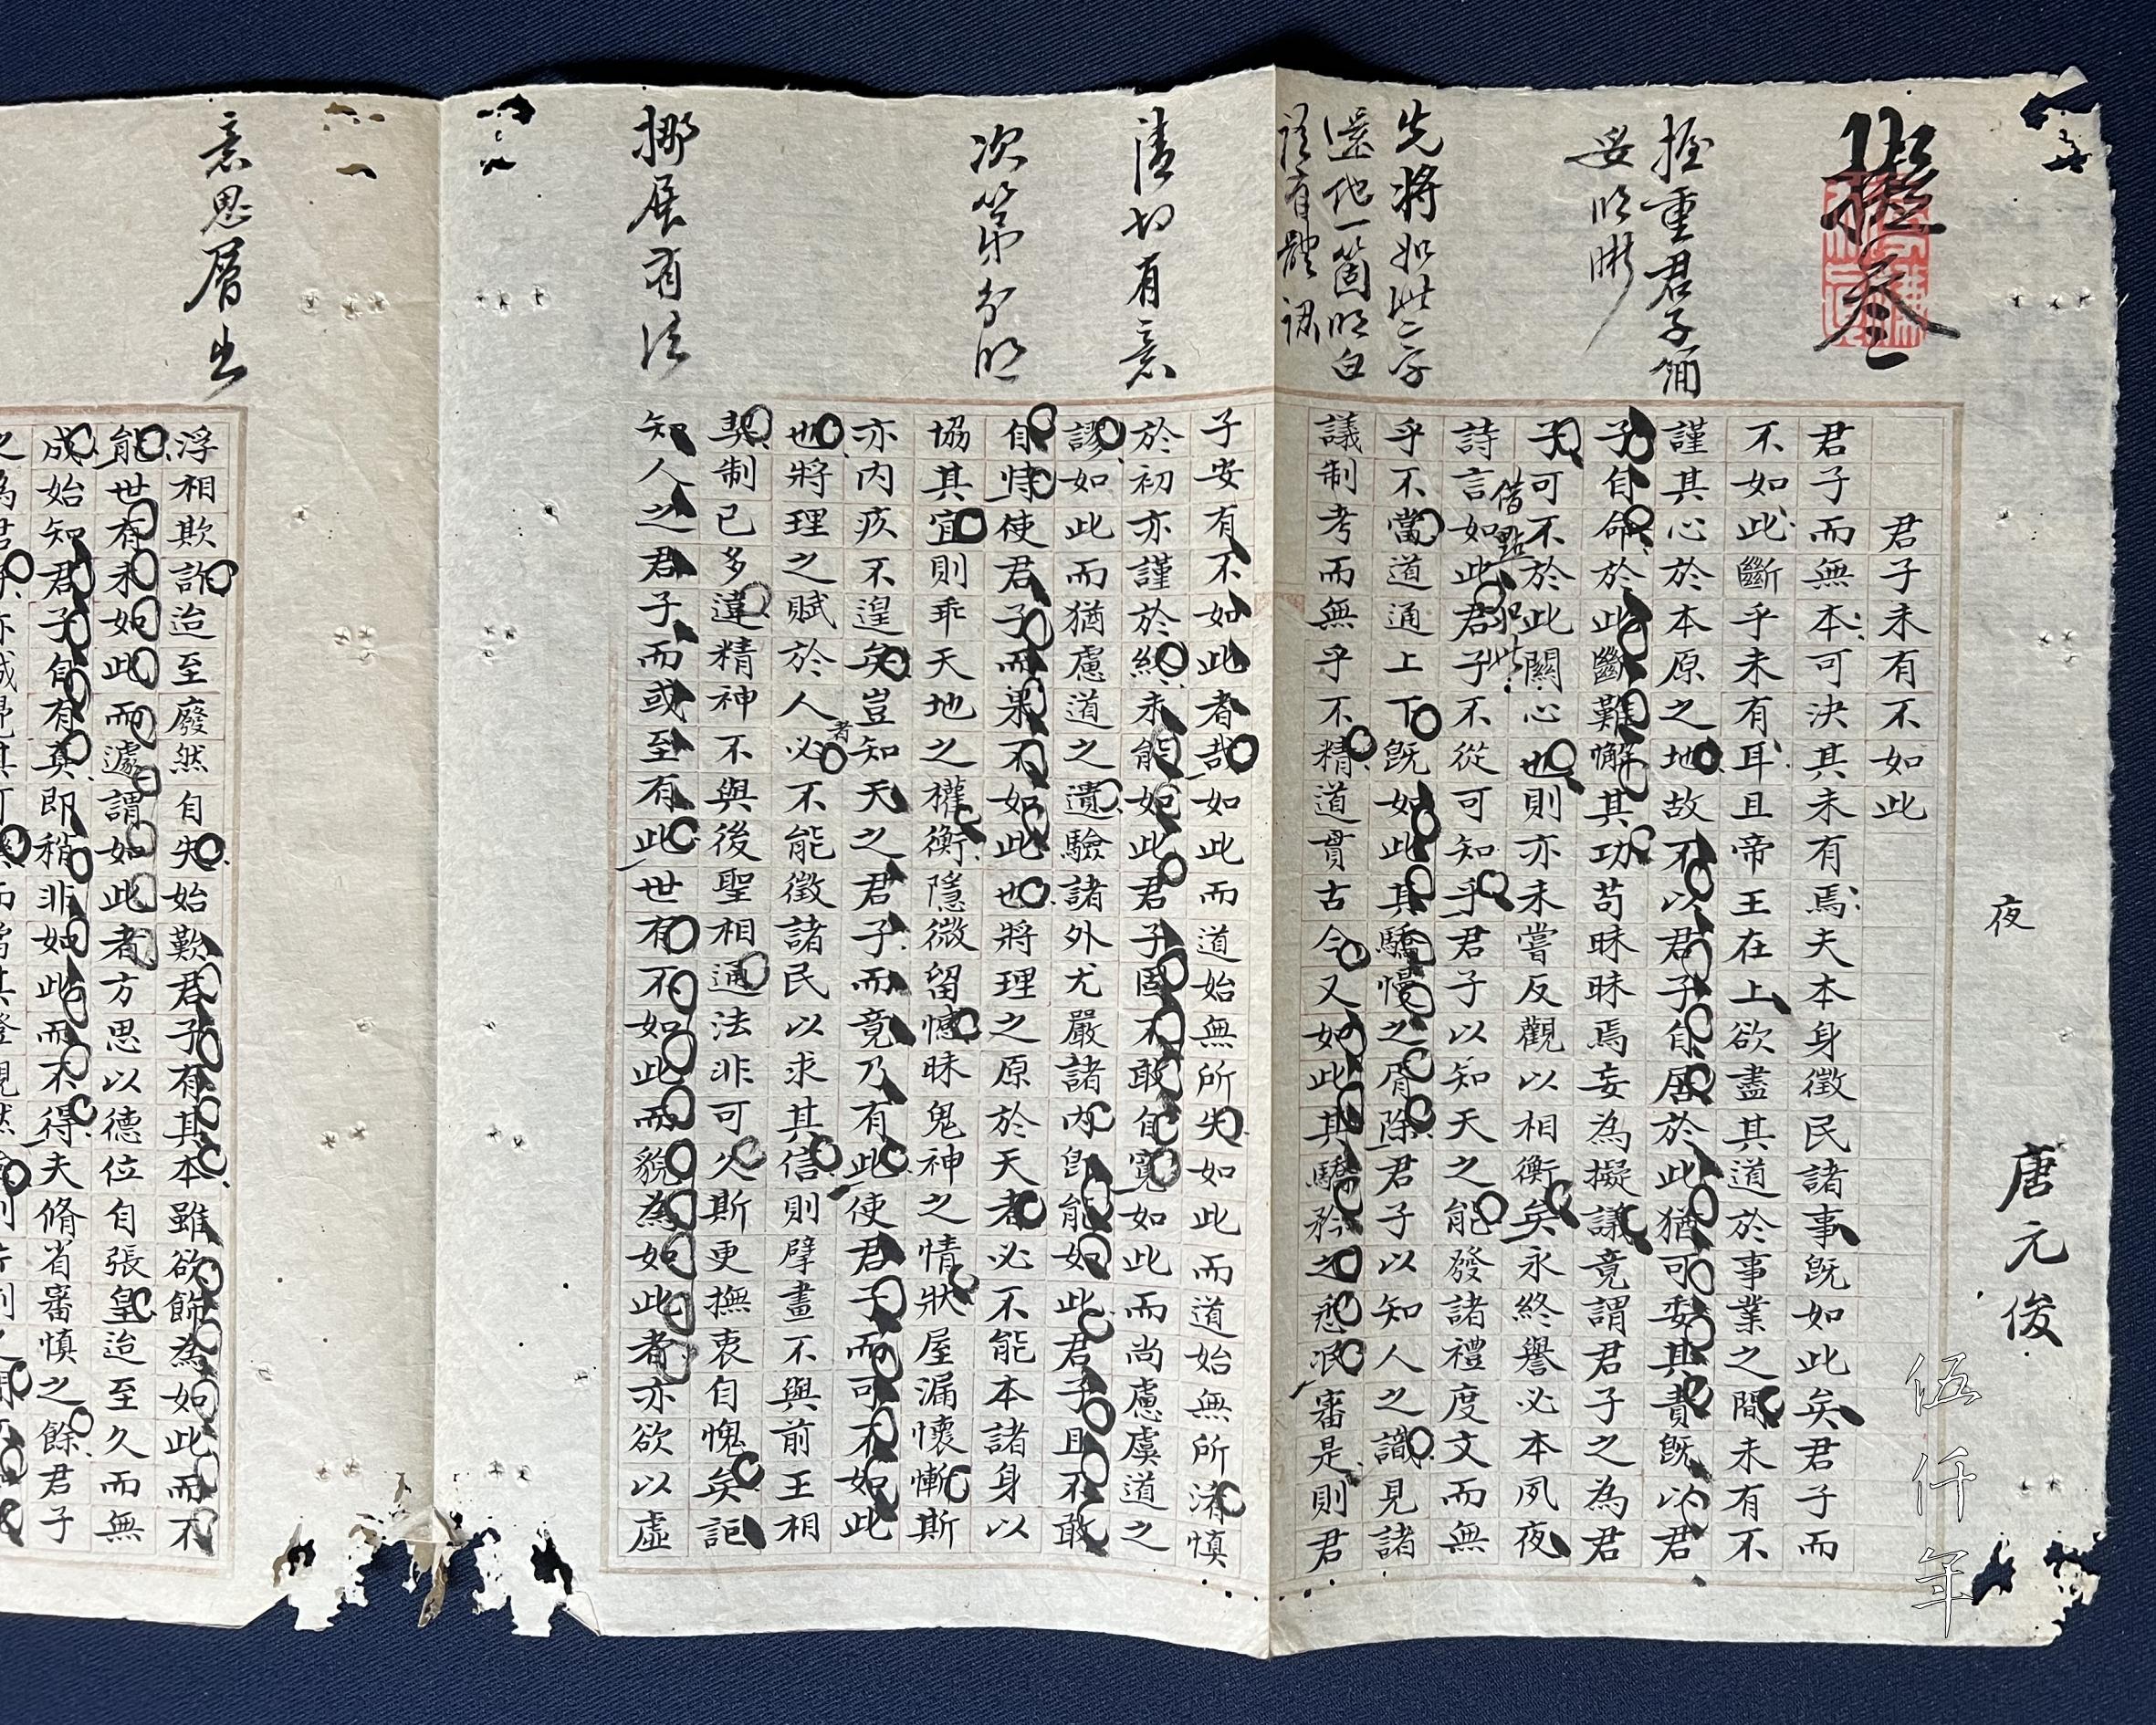 夜
唐元俊
伍仟年
叁
握重君子
妥明晰
先將如此二字
還他一箇明白
有體認
清切有意
次第分明
挪展有法
意思層出
君子未有不如此
君子而無本可決其未有焉夫本身徵民諸事既如此矣君子而
不如此斷乎未有耳且帝王在上欲盡其道於事業之間未有不
謹其心於本原之地故不以君子自居於此猶可委其責既以君
子自命於此斷難懈其功苟昧昧焉妄為擬議竟謂君子之為君
子可不於此關心也則亦未嘗反觀以相衡矣永終譽必本夙夜
借點犯此
詩言如此君子不從可知乎君子以知天之能發諸禮度文而無
乎不當道通上下既如此其驕慢之胥除君子以知人之識見諸
議制考而無乎不精道貫古今又如此其驕矜之悉泯審是則君
子安有不如此者哉如此而道始無所失如此而道始無所淆慎
於初亦謹於終未能如此君子固不敢自寬如此而尚慮虞道之
謬如此而猶慮道之遺驗諸外尤嚴諸內即能如此君子且不敢
自恃使君子而果不如此也將理之原於天者必不能本諸身以
協其宜則乖天地之權衡隱微留憾昧鬼神之情狀屋漏懷慚斯
亦內疚不遑矣豈知天之君子而竟乃有此使君子而可不如此
也將理之賦於人者必不能徵諸民以求其信則擘畫不與前王相
契制已多違精神不與後聖相通法非可久斯更撫衷自愧矣詎
知人之君子而或至有此世有不如此而貌為如此者亦欲以虛
浮相欺詐迨至廢然自失始歎君子有其本雖欲飾為如此而不
能世有未如此而遽謂如此者方思以德位自張皇迨至久而無
成始知君子自有真即稍非如此而不得夫脩省審慎之餘君子